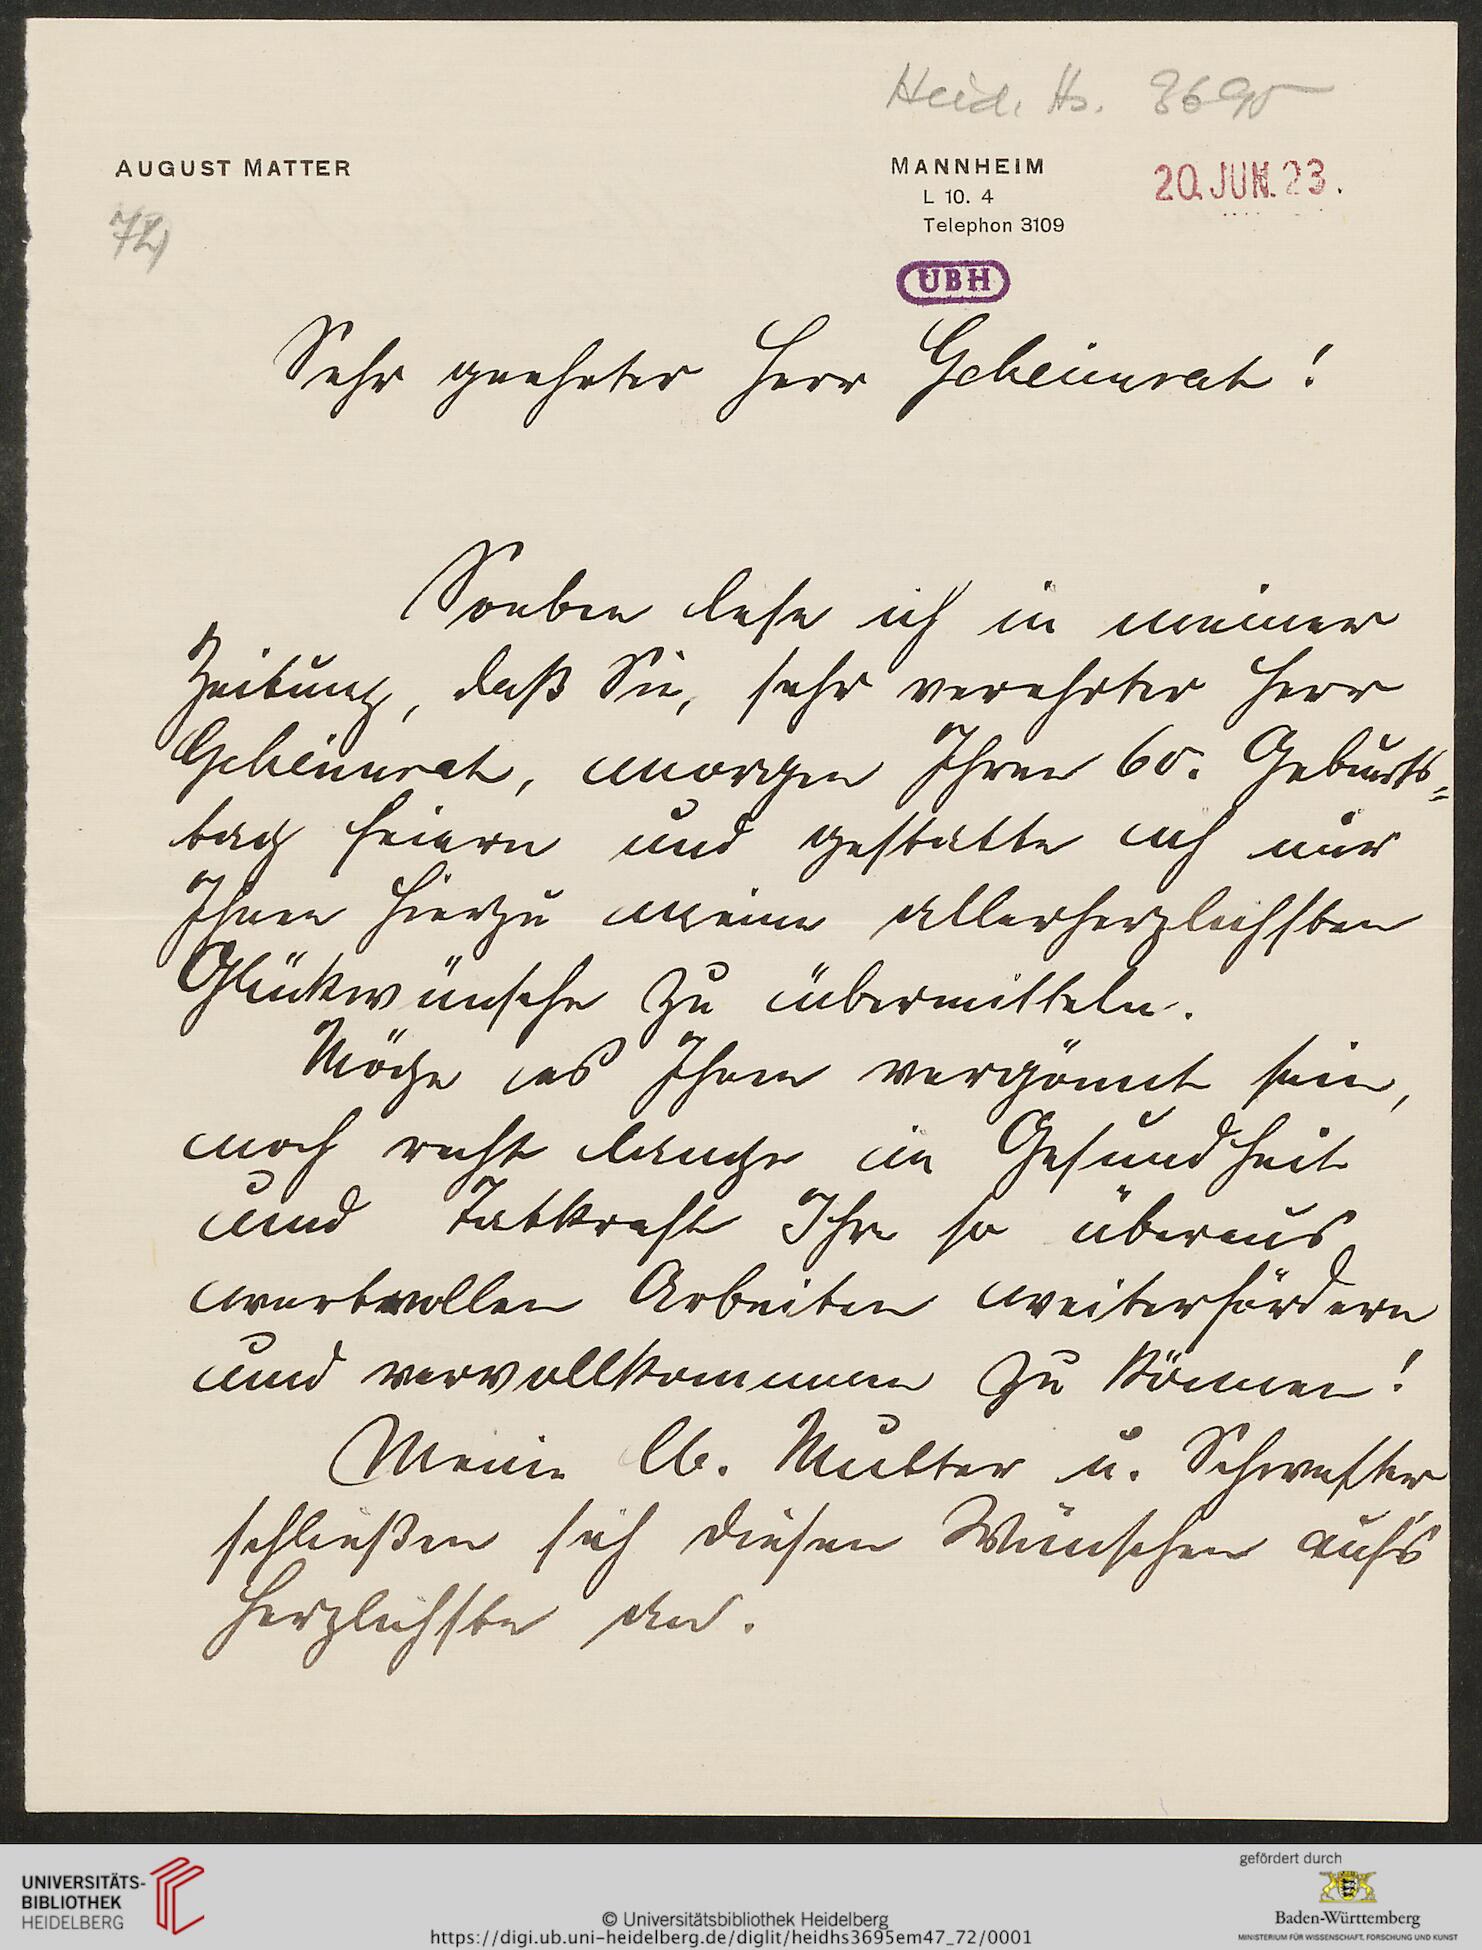 Heid. Hs. 3695
AUGUST MATTER
MANNHEIM
L 10. 4
Telephon 3109
20. JUN. 23.
72)
UBH
Sehr geehrter Herr Geheimrat!
Soeben lese ich in meiner
Zeitung, daß Sie, sehr verehrter Herr
Geheimrat, morgen Ihren 60. Geburts-
tag feiern und gestatte ich mir
Ihnen hierzu meine allerherzlichsten
Glückwünsche zu übermitteln.
Möge es Ihnen vergönnt sein,
noch recht lange in Gesundheit
und Tatkraft Ihre so überaus
wertvollen Arbeiten weiterfördern
und vervollkommnen zu können!
Meine lb. Mutter u. Schwester
schließen sich diesen Wünschen auf's
herzlichste an.
UNIVERSITÄTS-
BIBLIOTHEK
HEIDELBERG
© Universitätsbibliothek Heidelberg
https://digi.ub.uni-heidelberg.de/diglit/heidhs3695em47_72/0001
gefördert durch
Baden-Württemberg
MINISTERIUM FÜR WISSENSCHAFT, FORSCHUNG UND KUNST